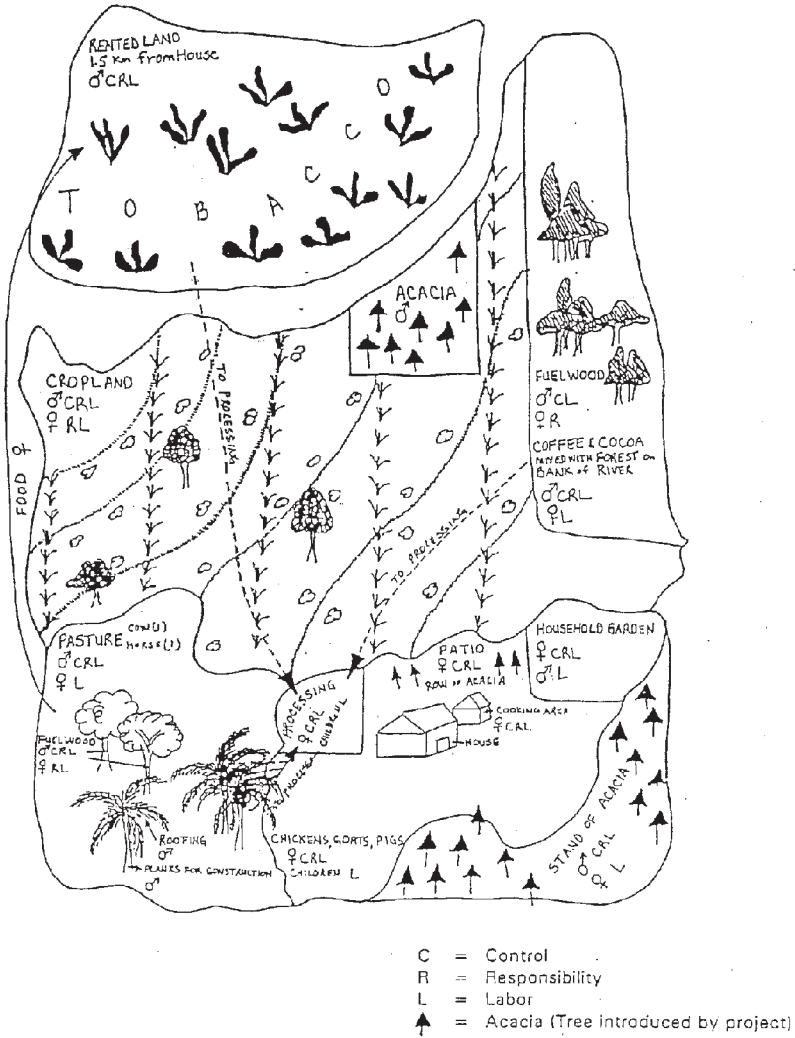 RENTED LAND
1.5 Km from House
♂ CRL
TOBACCO
ACACIA
♂
CROPLAND
♂ CRL
♀ RL
TO PROCESSING
FOOD ♀
FUELWOOD
♂ CL
♀ R
COFFEE & COCOA
MIXED WITH FOREST on
BANK of RIVER
♂ CRL
♀ L
TO PROCESSING
PASTURE COW(1)
HORSE(1)
♂ CRL
♀ L
PATIO
♀ CRL
ROW OF ACACIA
HOUSEHOLD GARDEN
♀ CRL
♂ L
PROCESSING
♀ CRL
COOKING AREA
♀ CRL
HOUSE
FUELWOOD
♂ CRL
♀ RL
ROOFING
♂
PLANKS FOR CONSTRUCTION
♂
CHICKENS, GOATS, PIGS
♀ CRL
CHILDREN L
STAND OF ACACIA
♂ CRL
♀ L
C = Control
R = Responsibility
L = Labor
= Acacia (Tree introduced by project)